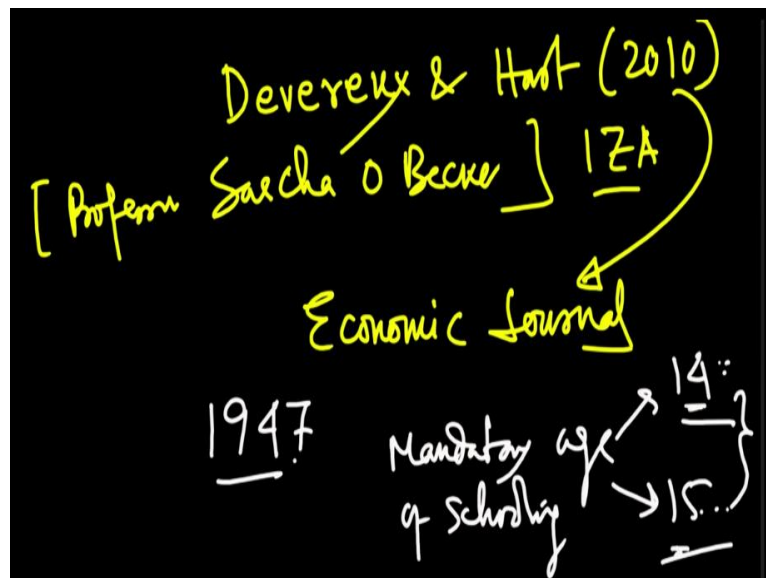 Devereux & Hart (2010)
[Professor Sascha O Becker] IZA
Economic Journal
1947 Mandatory age 14
of schooling 15...